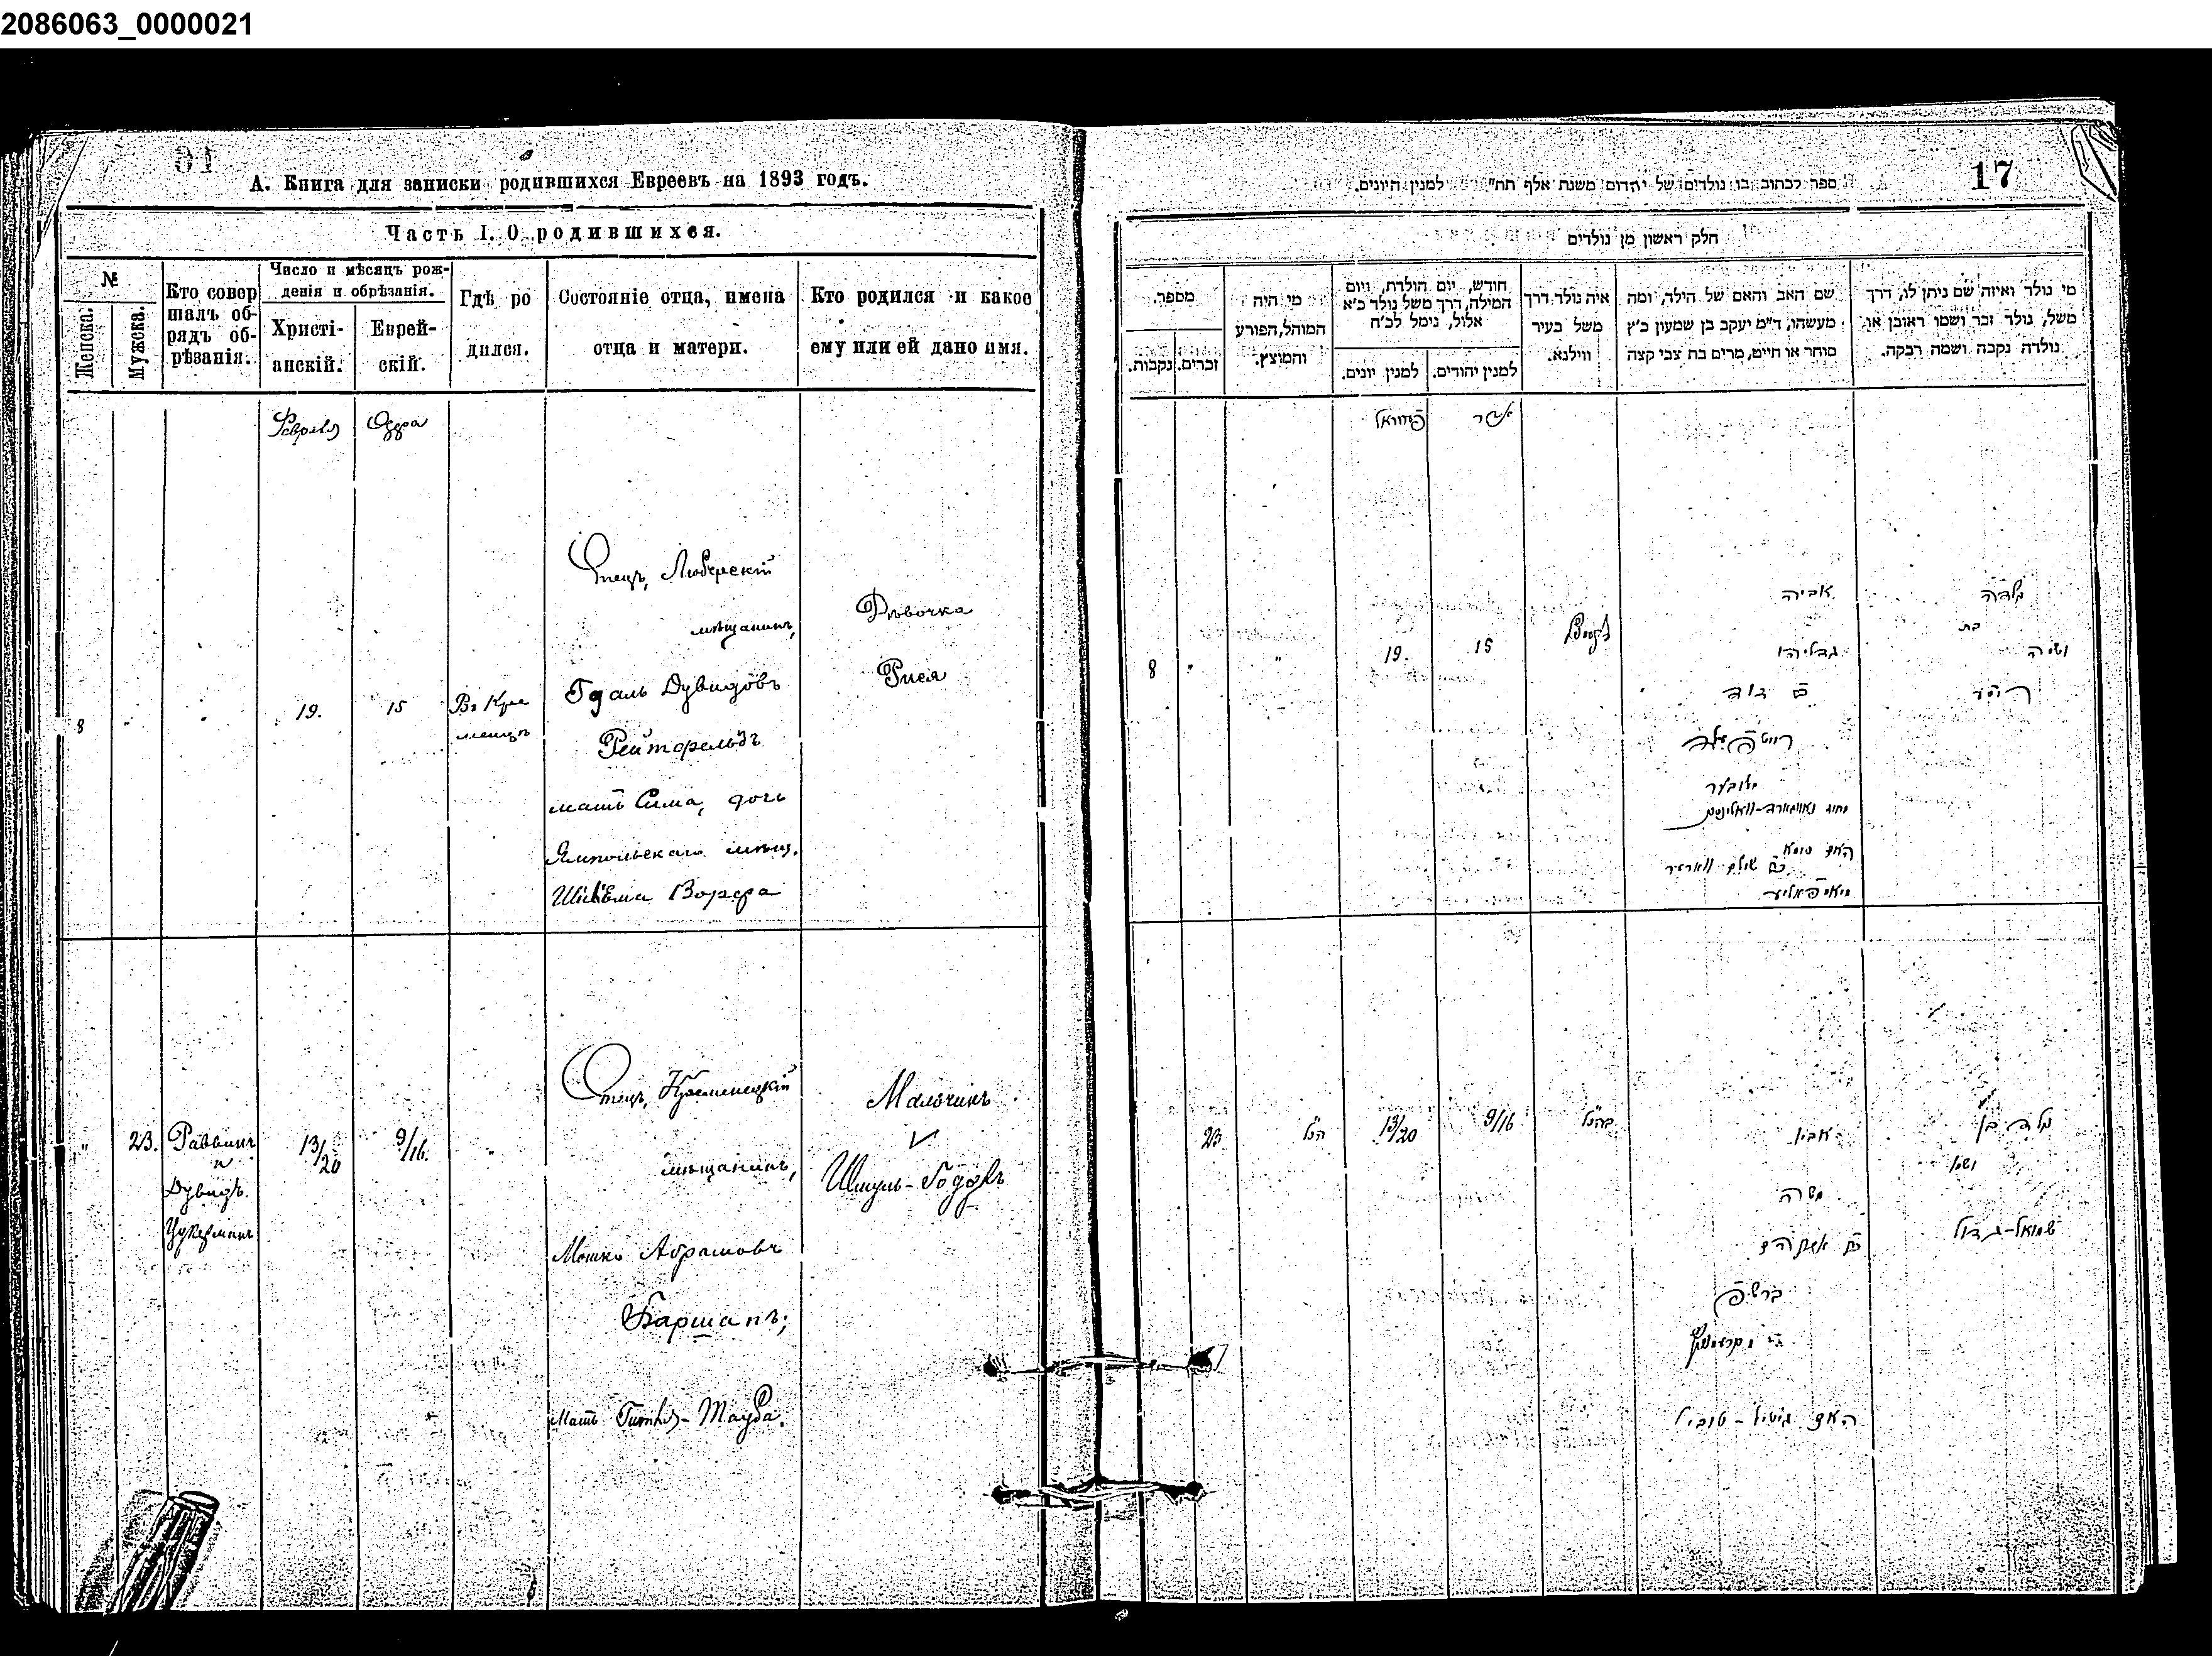 2086063_0000021
А. Книга для записки родившихся Евреевъ на 1893 годъ.
Часть I. О родившихся.
№
Женска.
Мужска.
Кто совер
шалъ об-
рядъ об-
рѣзанія.
Число и мѣсяцъ рож-
денія и обрѣзанія.
Христі-
анскій.
Еврей-
скій.
Гдѣ ро
дился.
Состояніе отца, имена
отца и матери.
Кто родился и какое
ему или ей дано имя.
Февраля
Одера
8
"
"
19.
15
Въ Кре
менцѣ
Отецъ,
мѣщанинъ,
Гдаль Дувидовъ
Рейтфельдъ
мать Сима, дочь
Ямпольскаго мѣщ.
Дѣвочка
Рися
"
23.
Раввинъ
и
Дувидъ
Цукерманъ
13/20
9/16.
"
Отецъ, Кременецкій
мѣщанинъ,
Мошко Абрамовъ
Баршапъ;
мать Гитля-Тауба.
Мальчикъ
Шмуль-Годаль
17
ספר לכתוב בו נולדים של יהדום משנת אלף תת" למנין היונים.
חלק ראשון מן נולדים
מספר.
נקבות.
זכרים.
מי היה
המוהל, הפורע
והמוצץ.
חודש, יום הולדת, ויום
המילה, דרך משל נולד כ״א
אלול, נימל לכ״ח
למנין יונים.
למנין יהודים.
איה נולד דרך
משל בעיר
ווילנא.
שם האב והאם של הילד, ומה
מעשהו, ד״מ יעקב בן שמעון כ״ץ
סוחר או חייט, מרים בת צבי קצה
מי נולד ואיזה שם ניתן לו, דרך
משל, נולד זכר ושמו ראובן או
נולדה נקבה ושמה רבקה.
פעווראל
אדר
8
"
"
19.
15
אביה
גדליהו
דוד
רייטפעלד
האם סימא
ילדה
בת
ושמה
ריסע
23
הנ״ל
13/20
9/16
כהנ״ל
אביו
משה
אברהם
ברשפ
האם גיטיל-טובה
ילד בן
ושמו
שמואל-גדל